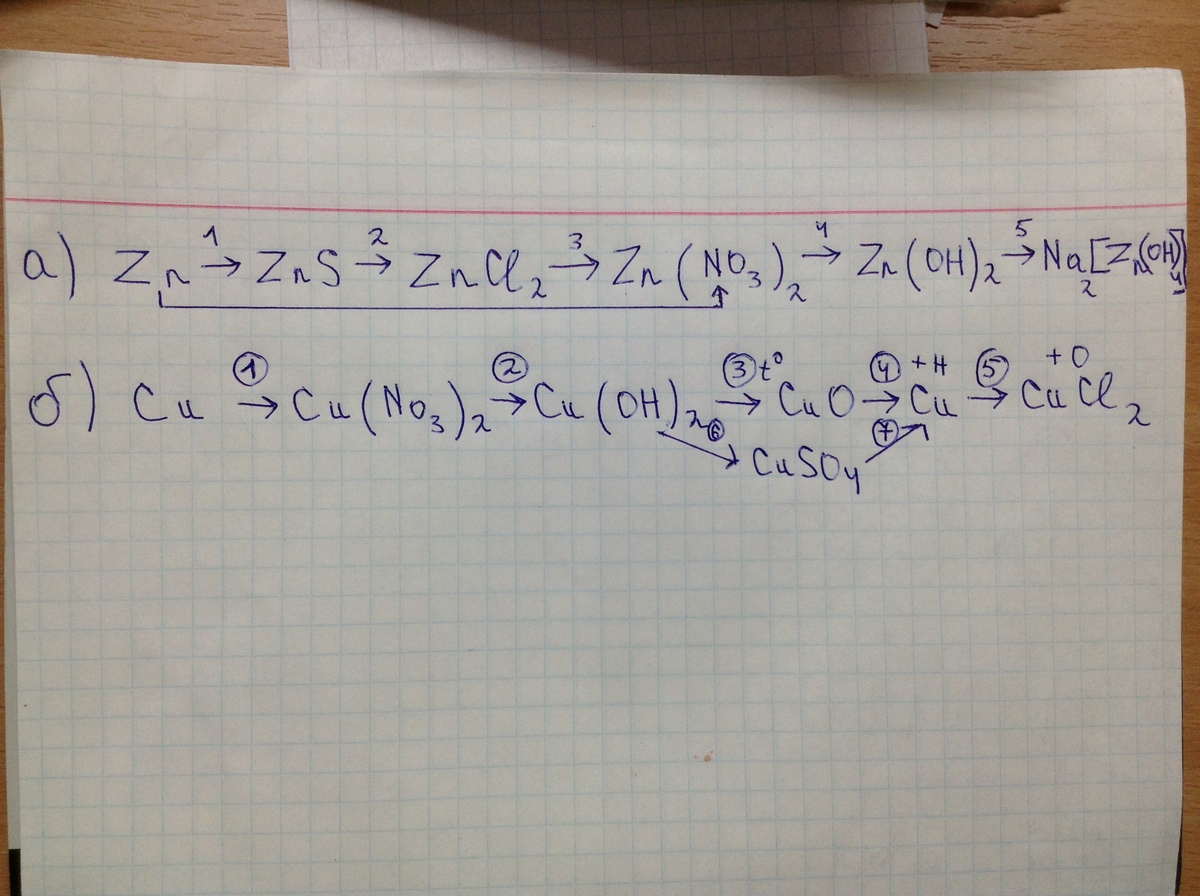 а) Zn 1→ ZnS 2→ ZnCl₂ 3→ Zn(NO₃)₂ 4→ Zn(OH)₂ 5→ Na₂[Zn(OH)₄]
б) Cu ①→ Cu(NO₃)₂ ②→ Cu(OH)₂ ③t°→ CuO ④+H→ Cu ⑤→ +O CuCl₂
⑥ CuSO₄ ⑦